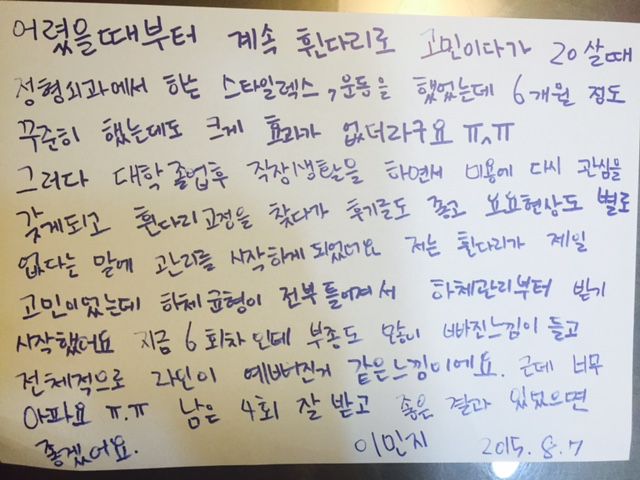 어렸을때부터 계속 휜다리로 고민이다가 20살때
정형외과에서 하는 스타일렉스, 운동을 했었는데 6개월 정도
꾸준히 했는데도 크게 효과가 없더라구요 ㅠ^ㅠ
그러다 대학졸업후 직장생활을 하면서 미용에 다시 관심을
갖게되고 휜다리교정을 찾다가 후기글도 좋고 요요현상도 별로
없다는 말에 관리를 시작하게 되었어요 저는 휜다리가 제일
고민이었는데 하체균형이 전부 틀어져서 하체관리부터 받기
시작했어요 지금 6회차인데 부종도 많이 빠진느낌이 들고
전체적으로 라인이 예뻐진거 같은느낌이에요. 근데 너무
아파요 ㅠ.ㅠ 남은 4회 잘 받고 좋은 결과 있었으면
좋겠어요. 이민지 2015. 8. 7